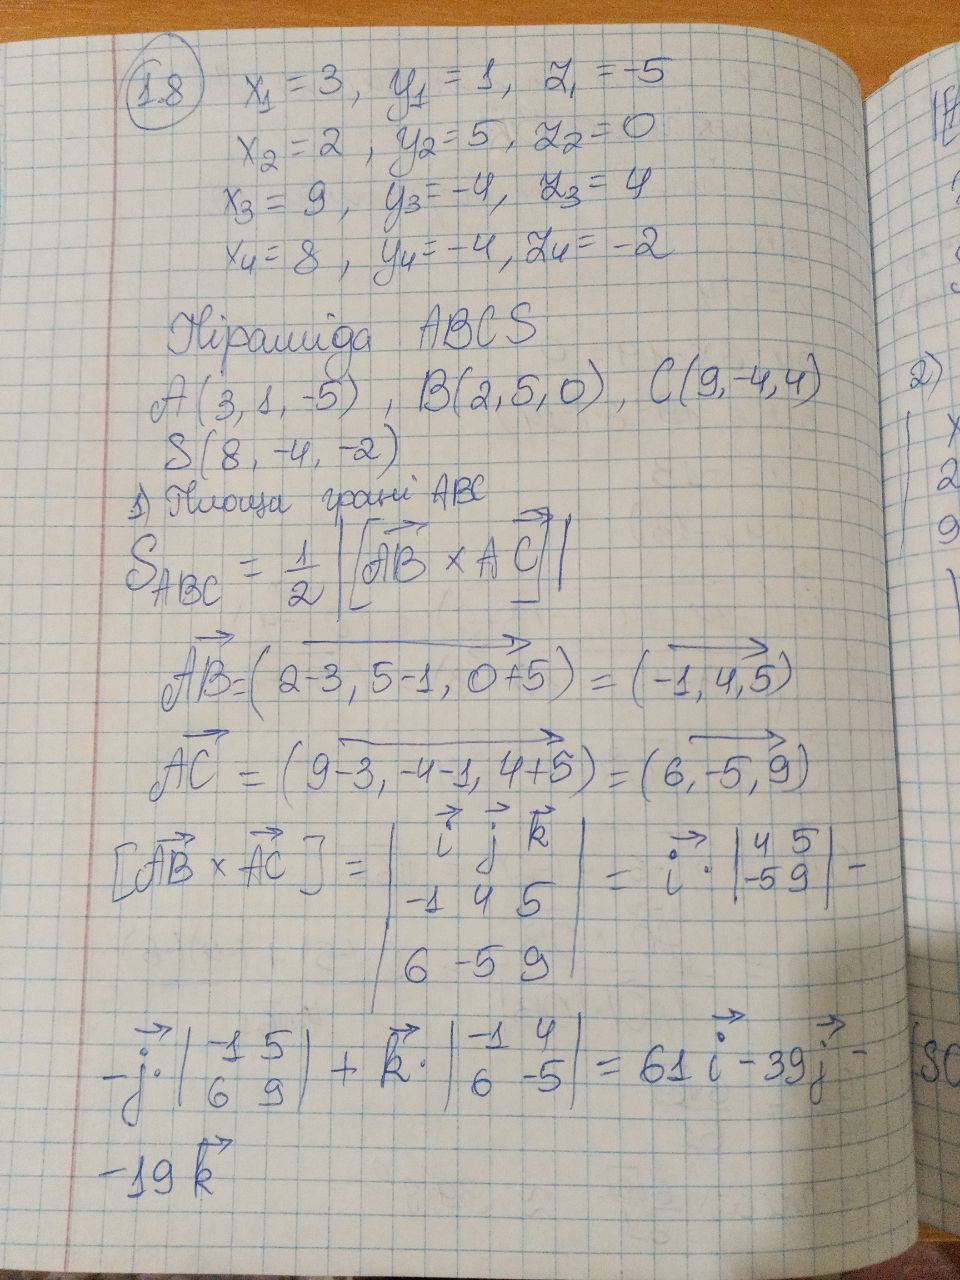 1.8 x₁ = 3, y₁ = 1, z₁ = -5
x₂ = 2, y₂ = 5, z₂ = 0
x₃ = 9, y₃ = -4, z₃ = 4
x₄ = 8, y₄ = -4, z₄ = -2
Піраміда ABCS
A(3, 1, -5), B(2, 5, 0), C(9, -4, 4)
S(8, -4, -2)
1) Площа грані ABC
S_ABC = 1/2 |[AB→ × AC→]|
AB→ = (2-3, 5-1, 0+5) = (-1, 4, 5)
AC→ = (9-3, -4-1, 4+5) = (6, -5, 9)
[AB→ × AC→] = | i→ j→ k→ | = i→ · | 4 5 | -
-1 4 5 -5 9
6 -5 9
-j→ · | -1 5 | + k→ · | -1 4 | = 61 i→ - 39 j→ -
6 9 6 -5
-19 k→
2)
x
2
9